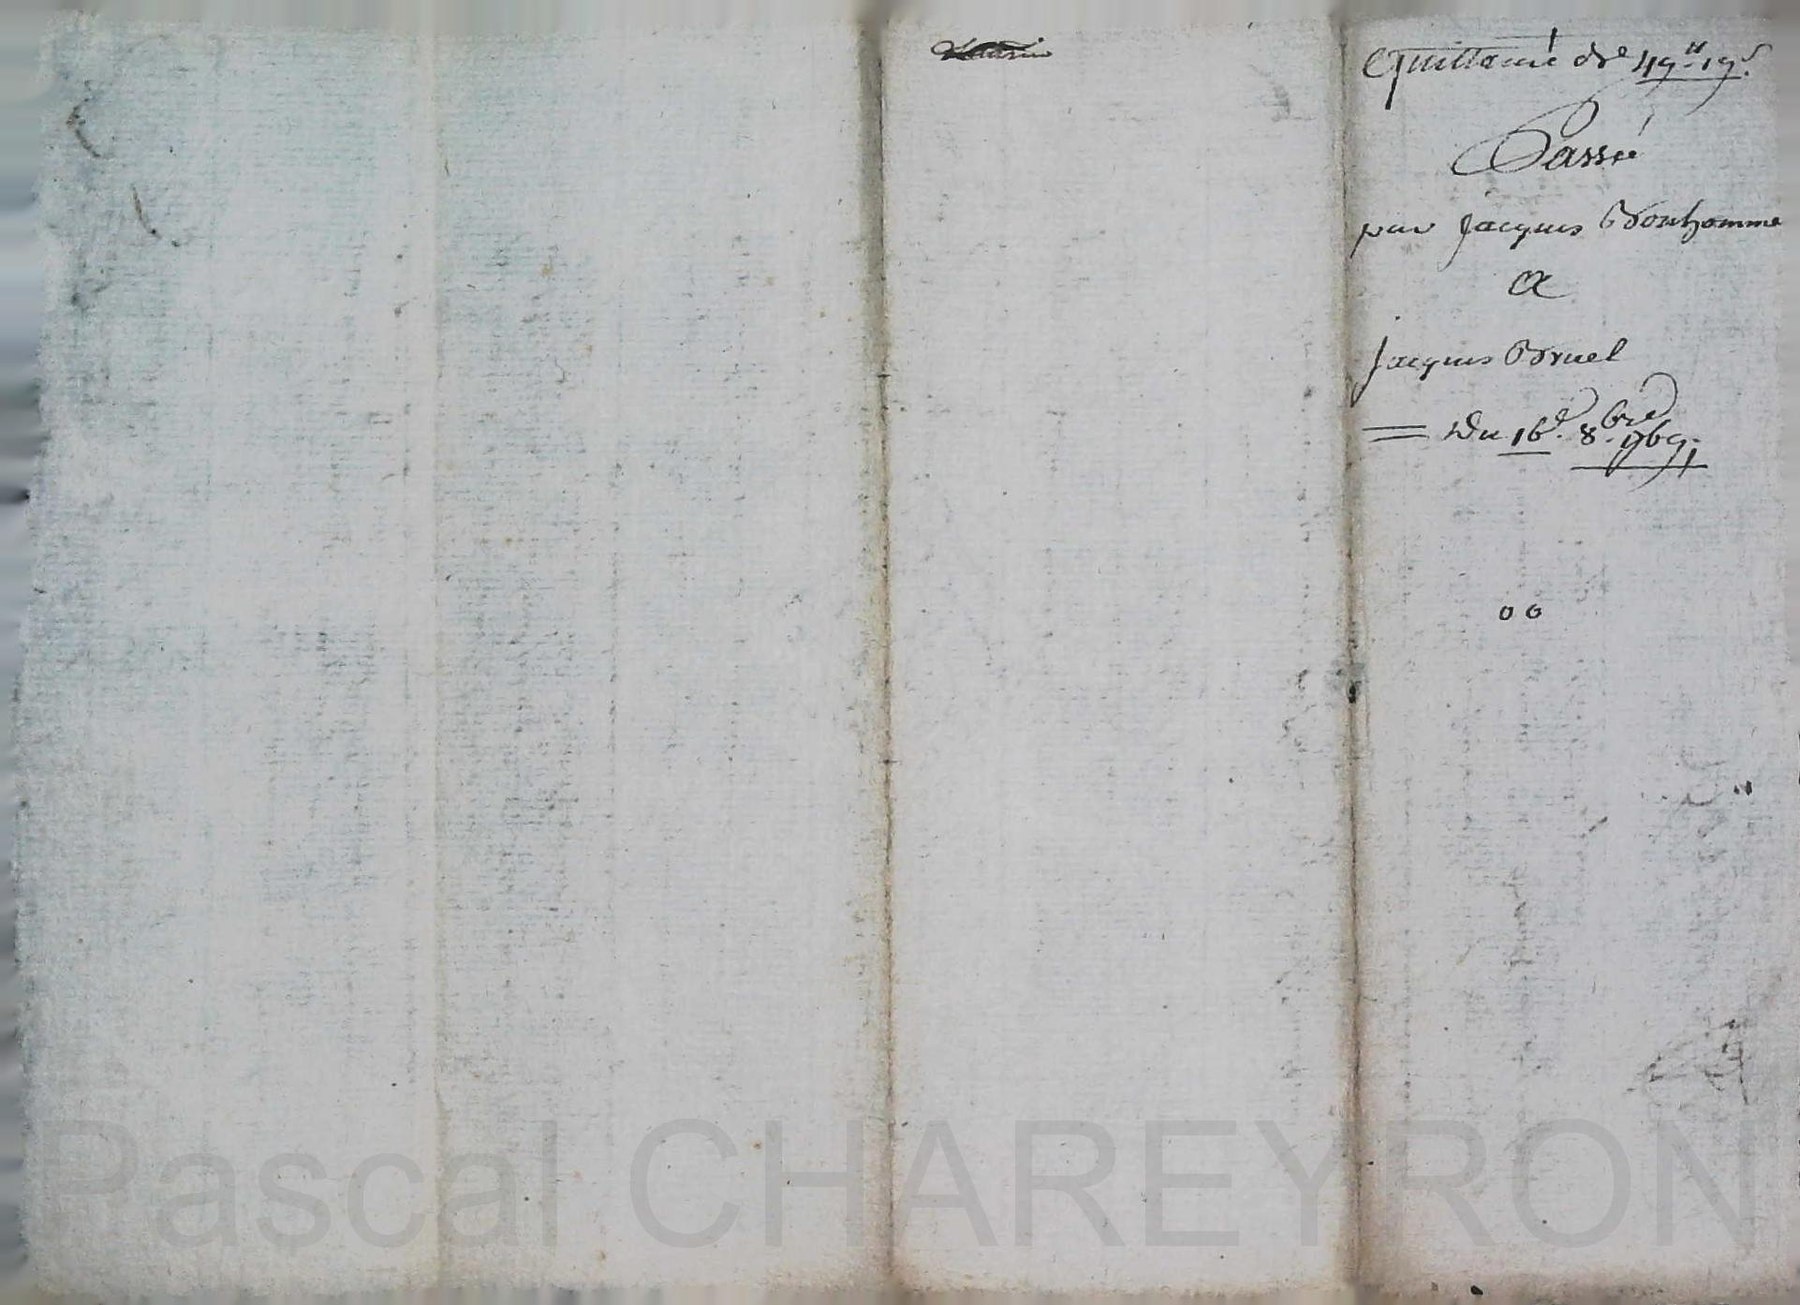 Quittance de 49ᴴ 19ˢ
Passé
par Jacques Bonhomme
a
Jacques Bruel
= Du 16ᵉ 8bre 1769
oo
Pascal CHAREYRON